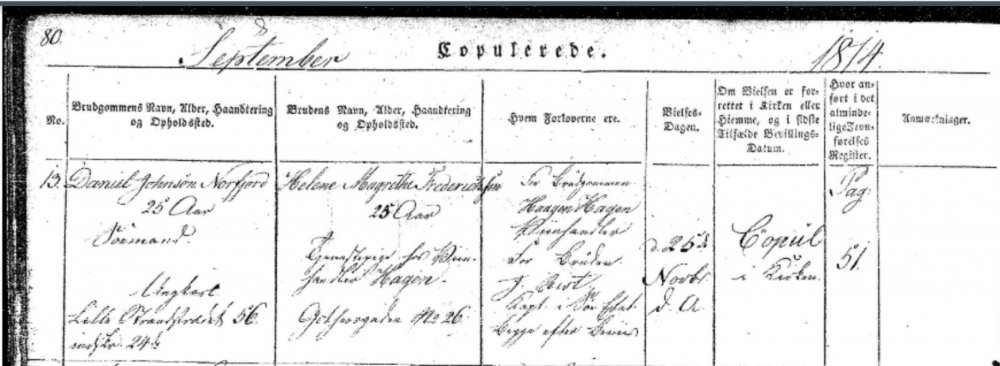 80.
September
Copulerede.
1814.
No.
Brudgommens Navn, Alder, Haandtering
og Opholdssted.
Brudens Navn, Alder, Haandtering,
og Opholdssted.
Hvem Forloverne ere.
Vielses-
Dagen.
Om Vielsen er for-
rettet i Kirken eller
Hiemme, og i sidste
Tilfælde Bevillings-
Datum.
Hvor an-
ført i det
alminde-
lige Jevn-
førelses
Register.
Anmærkninger.
13.
Daniel Johnsøn Norfjord
25 Aar
Søemand.
Ungkarl
Lille Strandstrædet 56.
24
Helene Magrethe Frederichsen
25 Aar
Tjenestepige hos Viin-
handler Hagen.
Gothersgaden No 26.
For Brudgommen
Haagen Hagen
Viinhandler
For Bruden
Capt i Søe Etat
Begge efter Beviis
d. 25d
Novbr
d. A
Copul
i Kirken.
Pag
51.